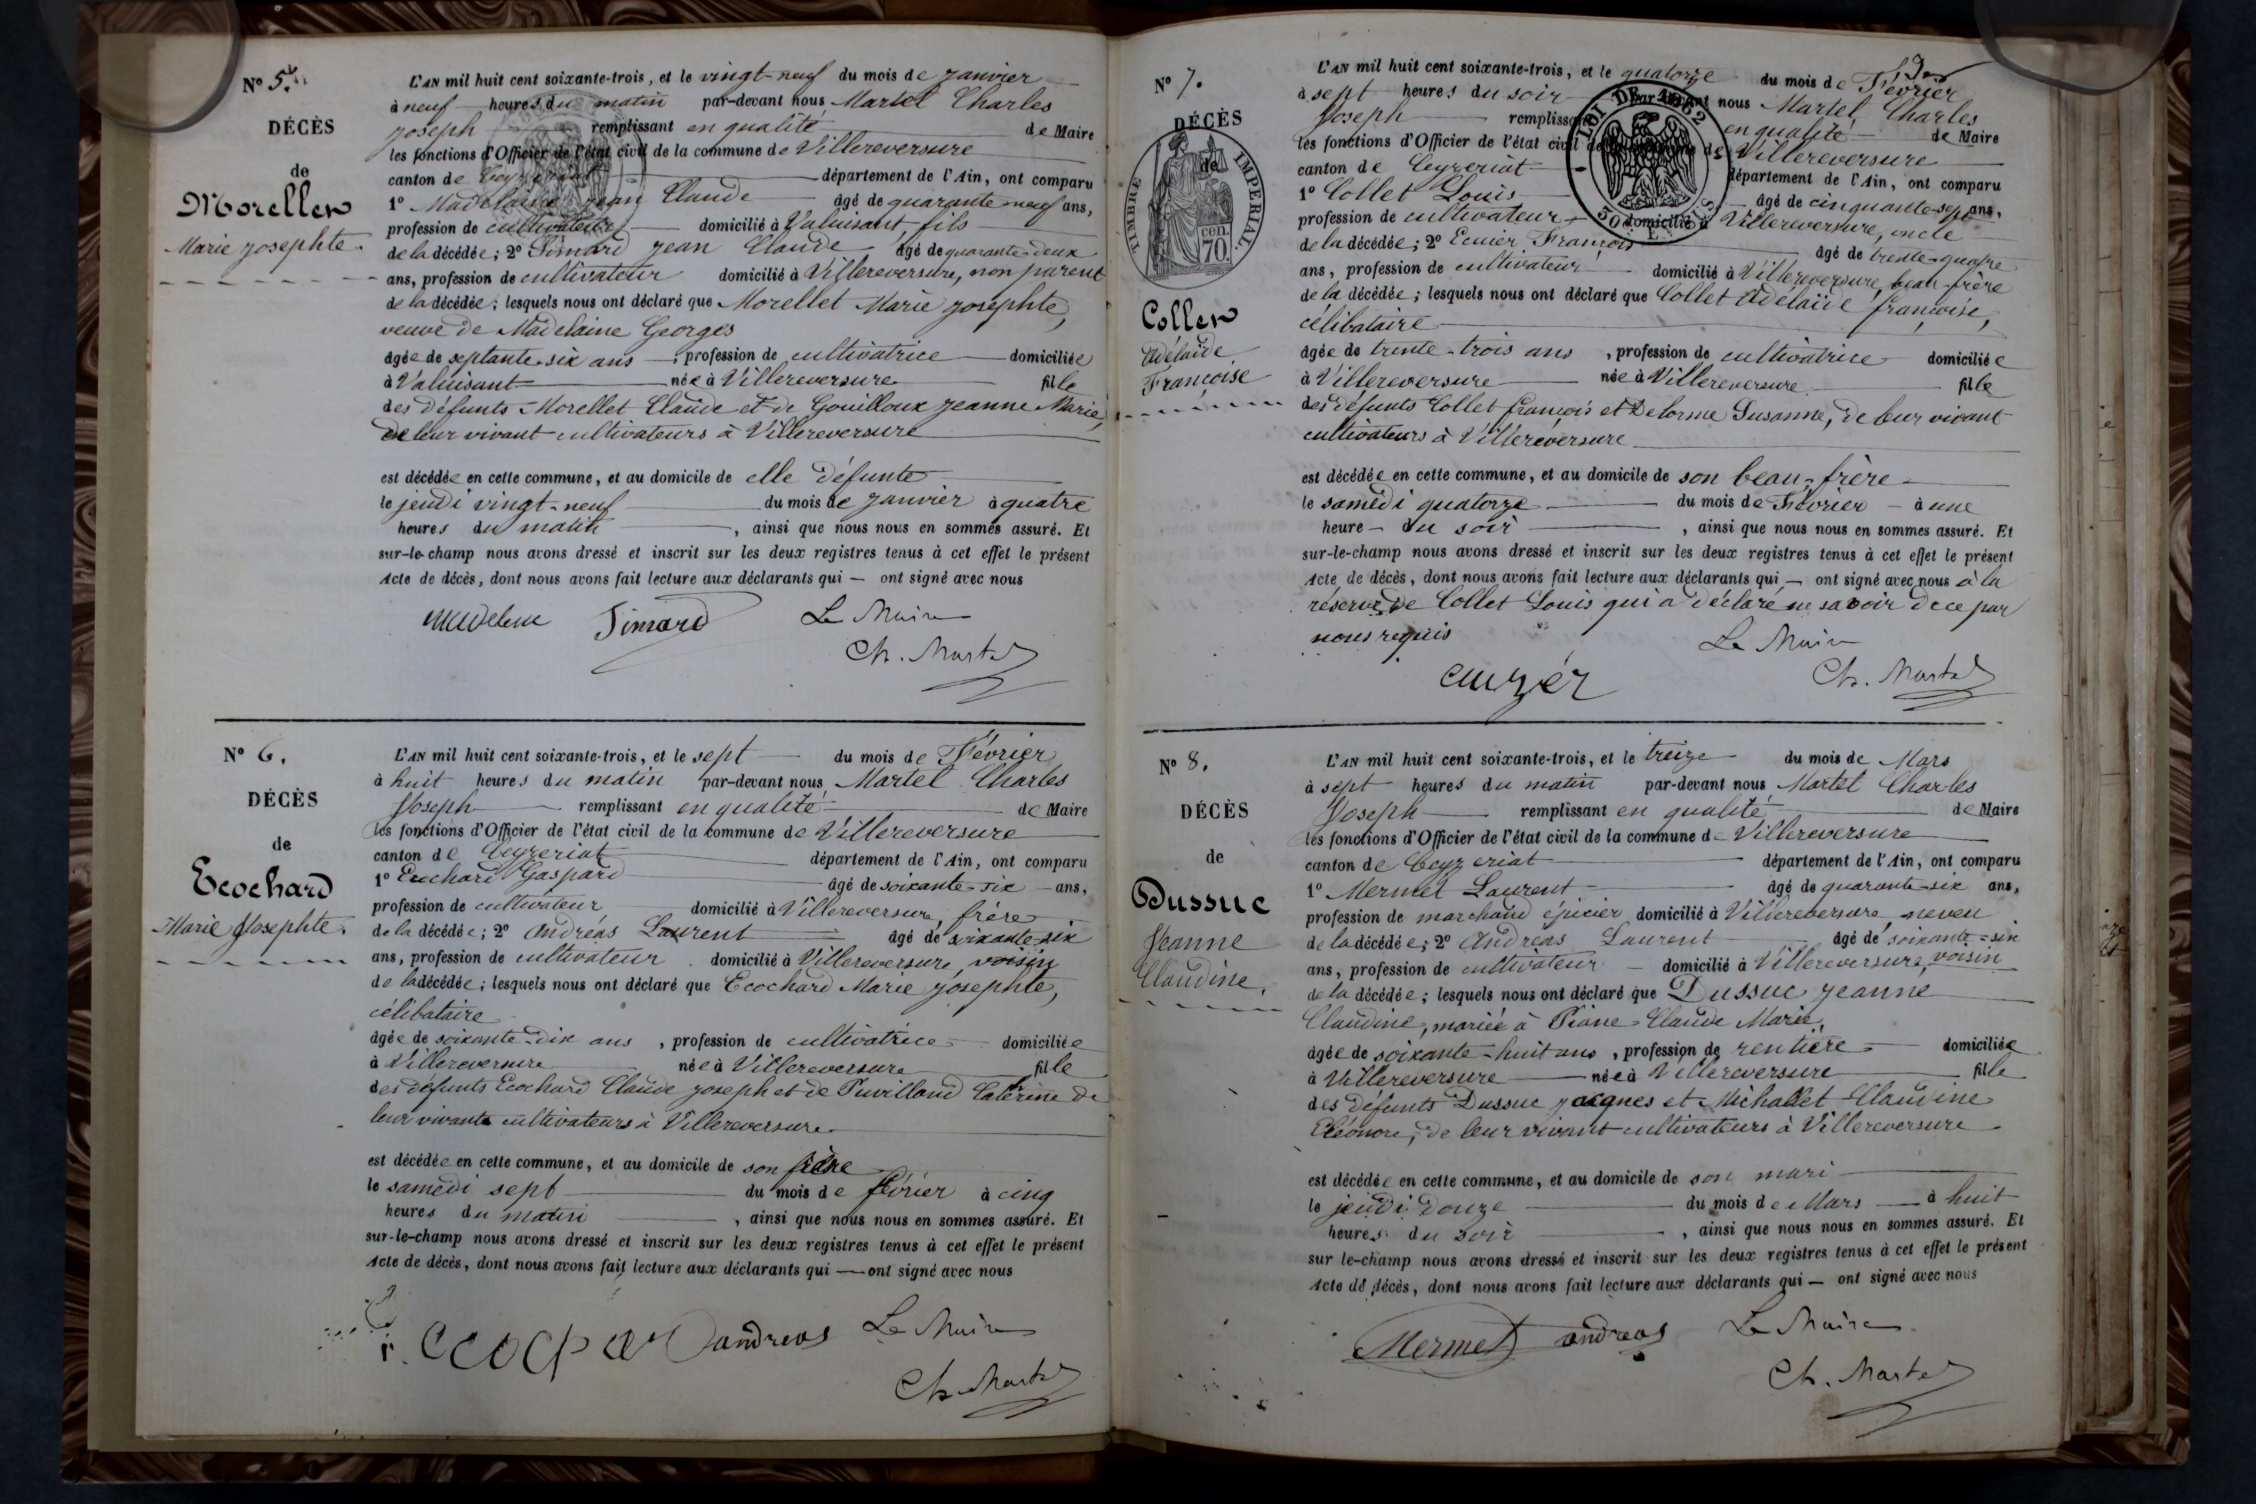 N° 5.
DÉCÈS
de
Morellet
Marie Josephte.
L'AN mil huit cent soixante-trois, et le vingt-neuf du mois de Janvier
à neuf heures du matin par-devant nous Martel Charles
Joseph remplissant en qualité de Maire
les fonctions d'Officier de l'état civil de la commune de Villereversure
canton de Ceyzeriat département de l'Ain, ont comparu
1° Madelaine Jean Claude âgé de quarante-neuf ans,
profession de cultivateur domicilié à Valuisant, fils
de la décédée; 2° Simard Jean Claude âgé de quarante-deux
ans, profession de cultivateur domicilié à Villereversure, non parent
de la décédée; lesquels nous ont déclaré que Morellet Marie Josephte,
veuve de Madelaine Georges
âgée de septante-six ans, profession de cultivatrice domiciliée
à Valuisant née à Villereversure fille
des défunts Morellet Claude et de Gouilloux Jeanne Marie,
de leur vivant cultivateurs à Villereversure
est décédée en cette commune, et au domicile de elle défunte
le jeudi vingt-neuf du mois de Janvier à quatre
heures du matin, ainsi que nous nous en sommes assuré. Et
sur-le-champ nous avons dressé et inscrit sur les deux registres tenus à cet effet le présent
Acte de décès, dont nous avons fait lecture aux déclarants qui — ont signé avec nous
Madelene Simard Le Maire
Ch. Martel
N° 6.
DÉCÈS
de
Ecochard
Marie Josephte.
L'AN mil huit cent soixante-trois, et le sept du mois de Février
à huit heures du matin par-devant nous Martel Charles
Joseph remplissant en qualité de Maire
les fonctions d'Officier de l'état civil de la commune de Villereversure
canton de Ceyzeriat département de l'Ain, ont comparu
1° Ecochard Gaspard âgé de soixante-six ans,
profession de cultivateur domicilié à Villereversure, frère
de la décédée; 2° Andréas Laurent âgé de soixante-six
ans, profession de cultivateur domicilié à Villereversure, voisin
de la décédée; lesquels nous ont déclaré que Ecochard Marie Josephte,
célibataire
âgée de soixante-dix ans, profession de cultivatrice domiciliée
à Villereversure née à Villereversure fille
des défunts Ecochard Claude Joseph et de Puvilland Catérine de
leur vivants cultivateurs à Villereversure
est décédée en cette commune, et au domicile de son frère
le samedi sept du mois de février à cinq
heures du matin, ainsi que nous nous en sommes assuré. Et
sur-le-champ nous avons dressé et inscrit sur les deux registres tenus à cet effet le présent
Acte de décès, dont nous avons fait lecture aux déclarants qui — ont signé avec nous
andreas Le Maire
Ch. Martel
N° 7.
DÉCÈS
de
TIMBRE IMPERIAL
70 cen.
Collet
Adélaïde
Françoise
LOI DE 1862
L'AN mil huit cent soixante-trois, et le quatorze du mois de Février
à sept heures du soir par-devant nous Martel Charles
Joseph remplissant en qualité de Maire
les fonctions d'Officier de l'état civil de la commune de Villereversure
canton de Ceyzeriat département de l'Ain, ont comparu
1° Collet Louis âgé de cinquante-sept ans,
profession de cultivateur domicilié à Villereversure, oncle
de la décédée; 2° Ecuier François âgé de trente-quatre
ans, profession de cultivateur domicilié à Villereversure, beau-frère
de la décédée; lesquels nous ont déclaré que Collet Adélaïde françoise,
célibataire
âgée de trente-trois ans, profession de cultivatrice domiciliée
à Villereversure née à Villereversure fille
des défunts Collet françois et Delorme Susanne, de leur vivant
cultivateurs à Villereversure
est décédée en cette commune, et au domicile de son beau-frère
le samedi quatorze du mois de Février à une
heure du soir, ainsi que nous nous en sommes assuré. Et
sur-le-champ nous avons dressé et inscrit sur les deux registres tenus à cet effet le présent
Acte de décès, dont nous avons fait lecture aux déclarants qui — ont signé avec nous à la
réserve de Collet Louis qui a déclaré ne savoir de ce par
nous requis
Le Maire
Ch. Martel
N° 8.
DÉCÈS
de
Dussuc
Jeanne
Claudine.
L'AN mil huit cent soixante-trois, et le treize du mois de Mars
à sept heures du matin par-devant nous Martel Charles
Joseph remplissant en qualité de Maire
les fonctions d'Officier de l'état civil de la commune de Villereversure
canton de Ceyzeriat département de l'Ain, ont comparu
1° Mermet Laurent âgé de quarante-six ans,
profession de marchand épicier domicilié à Villereversure neveu
de la décédée; 2° Andréas Laurent âgé de soixante-six
ans, profession de cultivateur domicilié à Villereversure, voisin
de la décédée; lesquels nous ont déclaré que Dussuc Jeanne
Claudine, mariée à Piâne Claude Marie,
âgée de soixante-huit ans, profession de rentière domiciliée
à Villereversure née à Villereversure fille
des défunts Dussuc Jacques et Michallet Claudine
Eléonore, de leur vivant cultivateurs à Villereversure
est décédée en cette commune, et au domicile de son mari
le jeudi douze du mois de Mars à huit
heures du soir, ainsi que nous nous en sommes assuré. Et
sur le-champ nous avons dressé et inscrit sur les deux registres tenus à cet effet le présent
Acte de décès, dont nous avons fait lecture aux déclarants qui — ont signé avec nous
Mermet andreas Le Maire
Ch. Martel